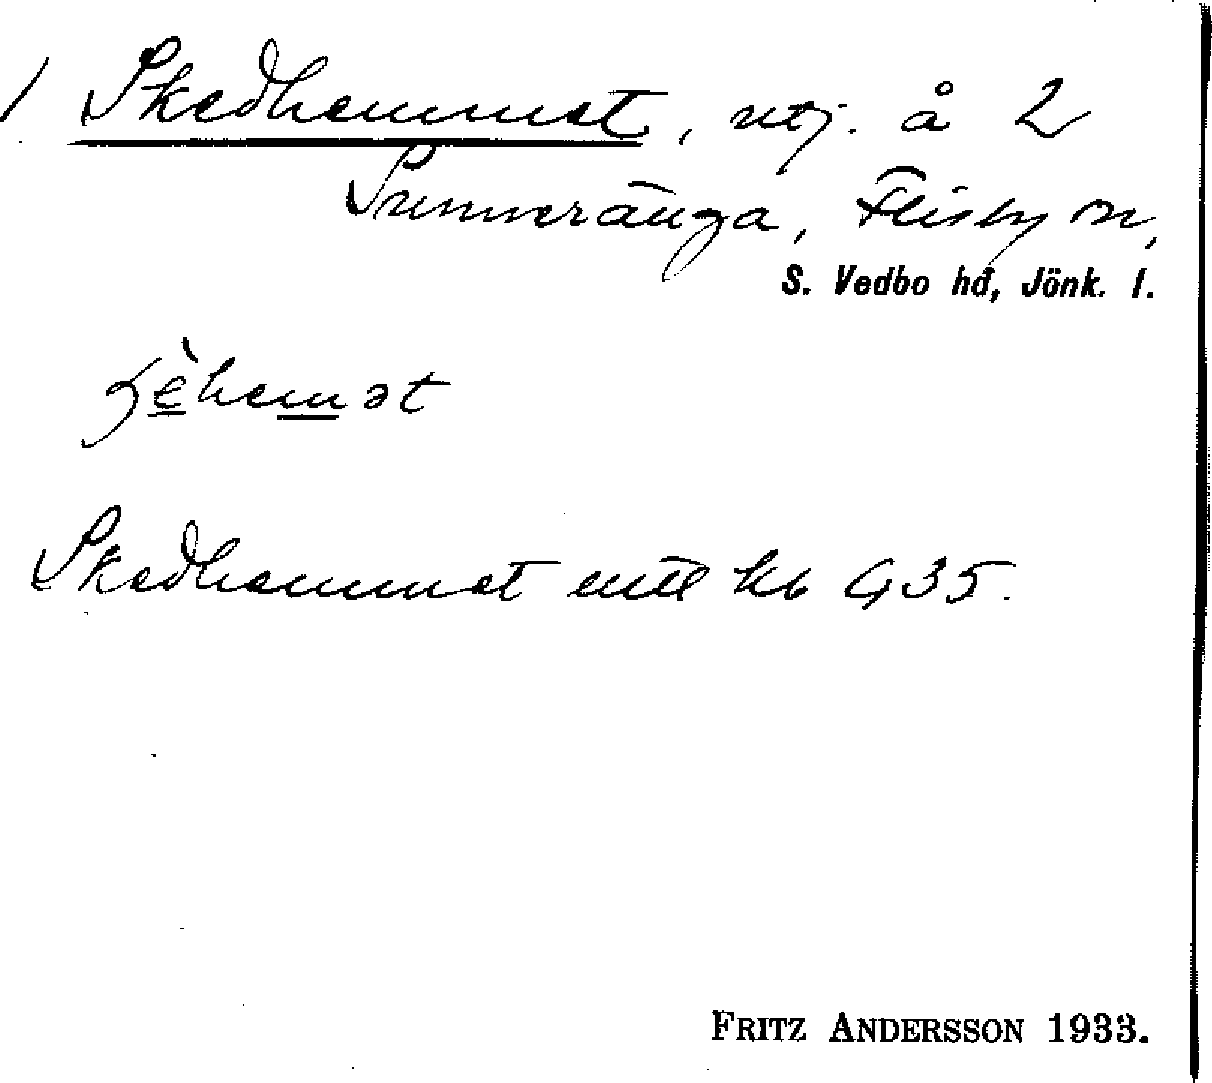 / Skedhemmet, utj. å 2
Sunneränga, Flisby sn,
S. Vedbo hd, Jönk. l.
hemət
Skedhemmet enl kb G35.
FRITZ ANDERSSON 1933.